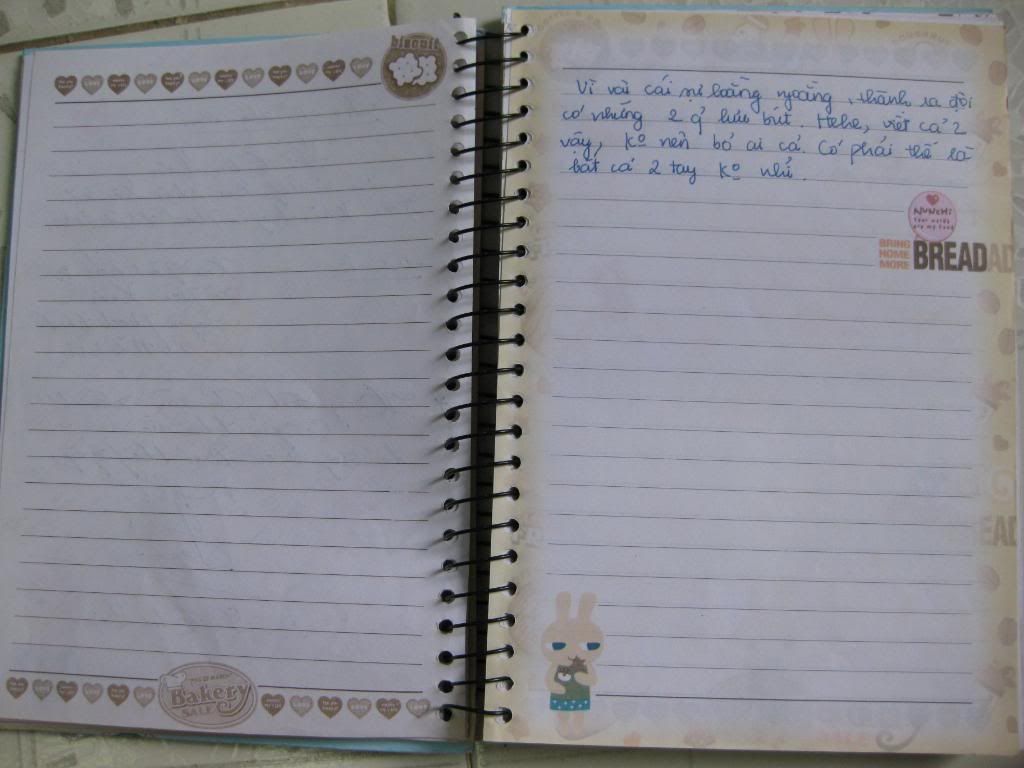 biscuit
Vì vài cái sự loằng ngoằng, thành ra đời
có những 2 q' lưu bút. Hehe, viết cả 2
vậy, ko nên bỏ ai cả. Có phải thế là
bắt cá 2 tay ko nhỉ.
NUNCHI
Your words
are my food
BRING
HOME
MORE
BREAD
Bakery
SALE